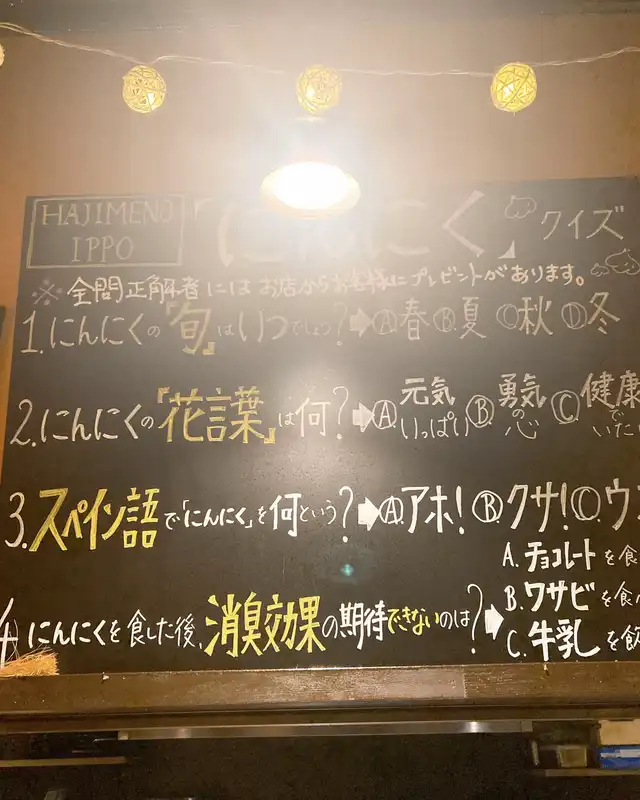 HAJIMENO
IPPO
『にんにく』クイズ
※全問正解者にはお店からお客様にプレゼントがあります。
1.にんにくの『旬』はいつでしょう?➡Ⓐ春Ⓑ夏Ⓒ秋Ⓓ冬
2.にんにくの『花言葉』は何?➡Ⓐ元気いっぱいⒷ勇気の心Ⓒ健康で
3.スペイン語で「にんにく」を何という?➡Ⓐアホ!Ⓑクサ!Ⓒウ
4にんにくを食した後、消臭効果の期待できないのは?➡
A.チョコレートを食
B.ワサビを食
C.牛乳を飲